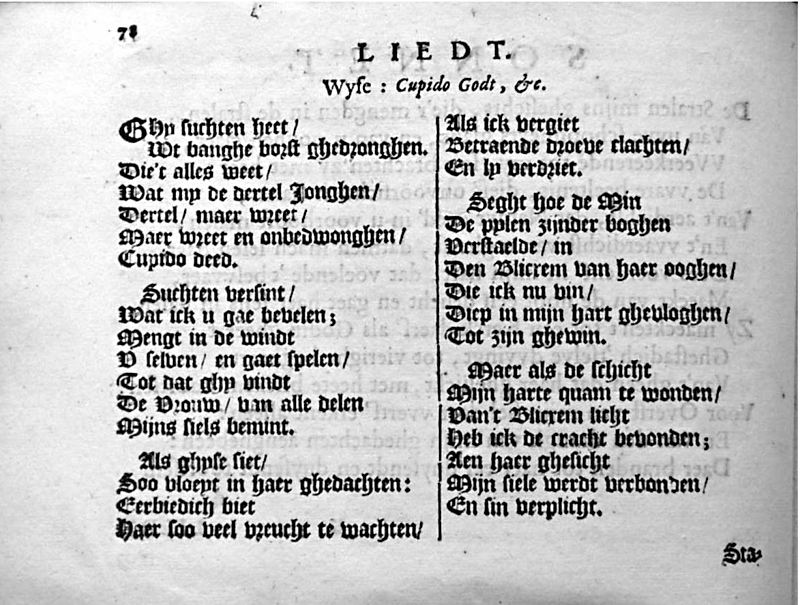 78
LIEDT.
Wyse : Cupido Godt, &c.
GHy suchten heet/
Wt banghe borst ghedronghen.
Die't alles weet/
Wat my de dertel Jonghen/
Dertel/ maer wreet/
Maer wreet en onbedwonghen/
Cupido deed.
Suchten versint/
Wat ick u gae bevelen;
Mengt in de windt
V selven/ en gaet spelen/
Tot dat ghy vindt
De Vrouw/ van alle delen
Mijns siels bemint.
Als ghyse siet/
Soo vloeyt in haer ghedachten:
Eerbiedich biet
Haer soo veel vreucht te wachten/
Als ick vergiet
Betraende droeve clachten/
En ly verdriet.
Seght hoe de Min
De pylen zijnder boghen
Verstaelde/ in
Den Blicxem van haer ooghen/
Die ick nu vin/
Diep in mijn hart ghevloghen/
Tot zijn ghewin.
Maer als de schicht
Mijn harte quam te wonden/
Van't Blicxem licht
Heb ick de cracht bevonden;
Aen haer ghesicht
Mijn siele werdt verbonden/
En sin verplicht.
Sta-